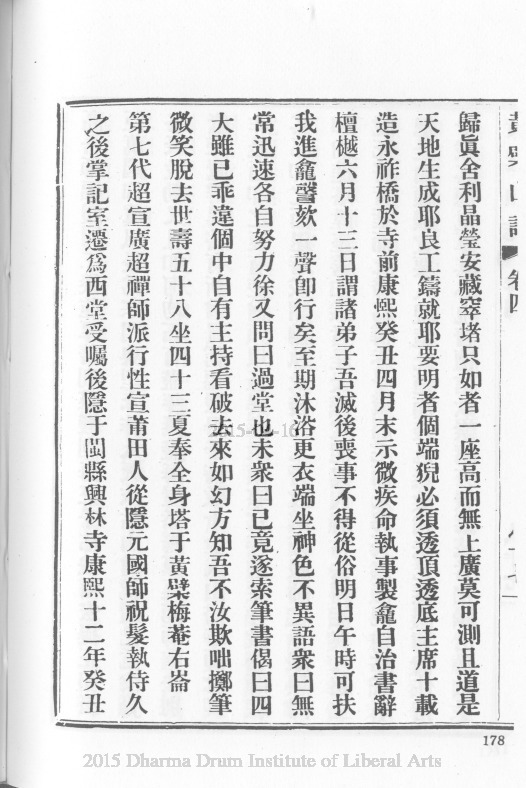 黃檗山誌 卷四
歸眞舍利晶瑩安藏窣堵只如者一座高而無上廣莫可測且道是
天地生成耶良工鑄就耶要明者個端猊必須透頂透底主席十載
造永祚橋於寺前康熙癸丑四月末示微疾命執事製龕自治書辭
檀樾六月十三日謂諸弟子吾滅後喪事不得從俗明日午時可扶
我進龕謦欬一聲卽行矣至期沐浴更衣端坐神色不異語衆曰無
常迅速各自努力徐又問曰過堂也未衆曰已竟遂索筆書偈曰四
大雖已乖違個中自有主持看破去來如幻方知吾不汝欺咄擲筆
微笑脫去世壽五十八坐四十三夏奉全身塔于黃檗梅菴右崙
第七代超宣廣超禪師派行性宣莆田人從隱元國師祝髮執侍久
之後掌記室遷爲西堂受囑後隱于閩縣興林寺康熙十二年癸丑
178
2015 Dharma Drum Institute of Liberal Arts